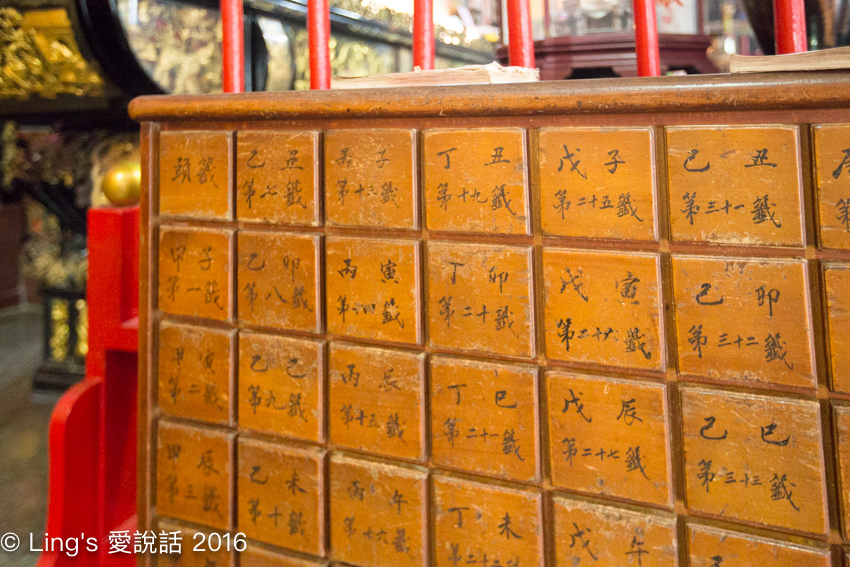 頭籤
乙 丑
第七籤
丙 子
第十三籤
丁 丑
第十九籤
戊 子
第二十五籤
己 丑
第三十一籤
甲 子
第一籤
乙 卯
第八籤
丙 寅
第十四籤
丁 卯
第二十籤
戊 寅
第二十六籤
己 卯
第三十二籤
甲 寅
第二籤
乙 巳
第九籤
丙 辰
第十五籤
丁 巳
第二十一籤
戊 辰
第二十七籤
己 巳
第三十三籤
甲 辰
第三籤
乙 未
第十籤
丙 午
第十六籤
丁 未
戊 午
© Ling's 愛說話 2016